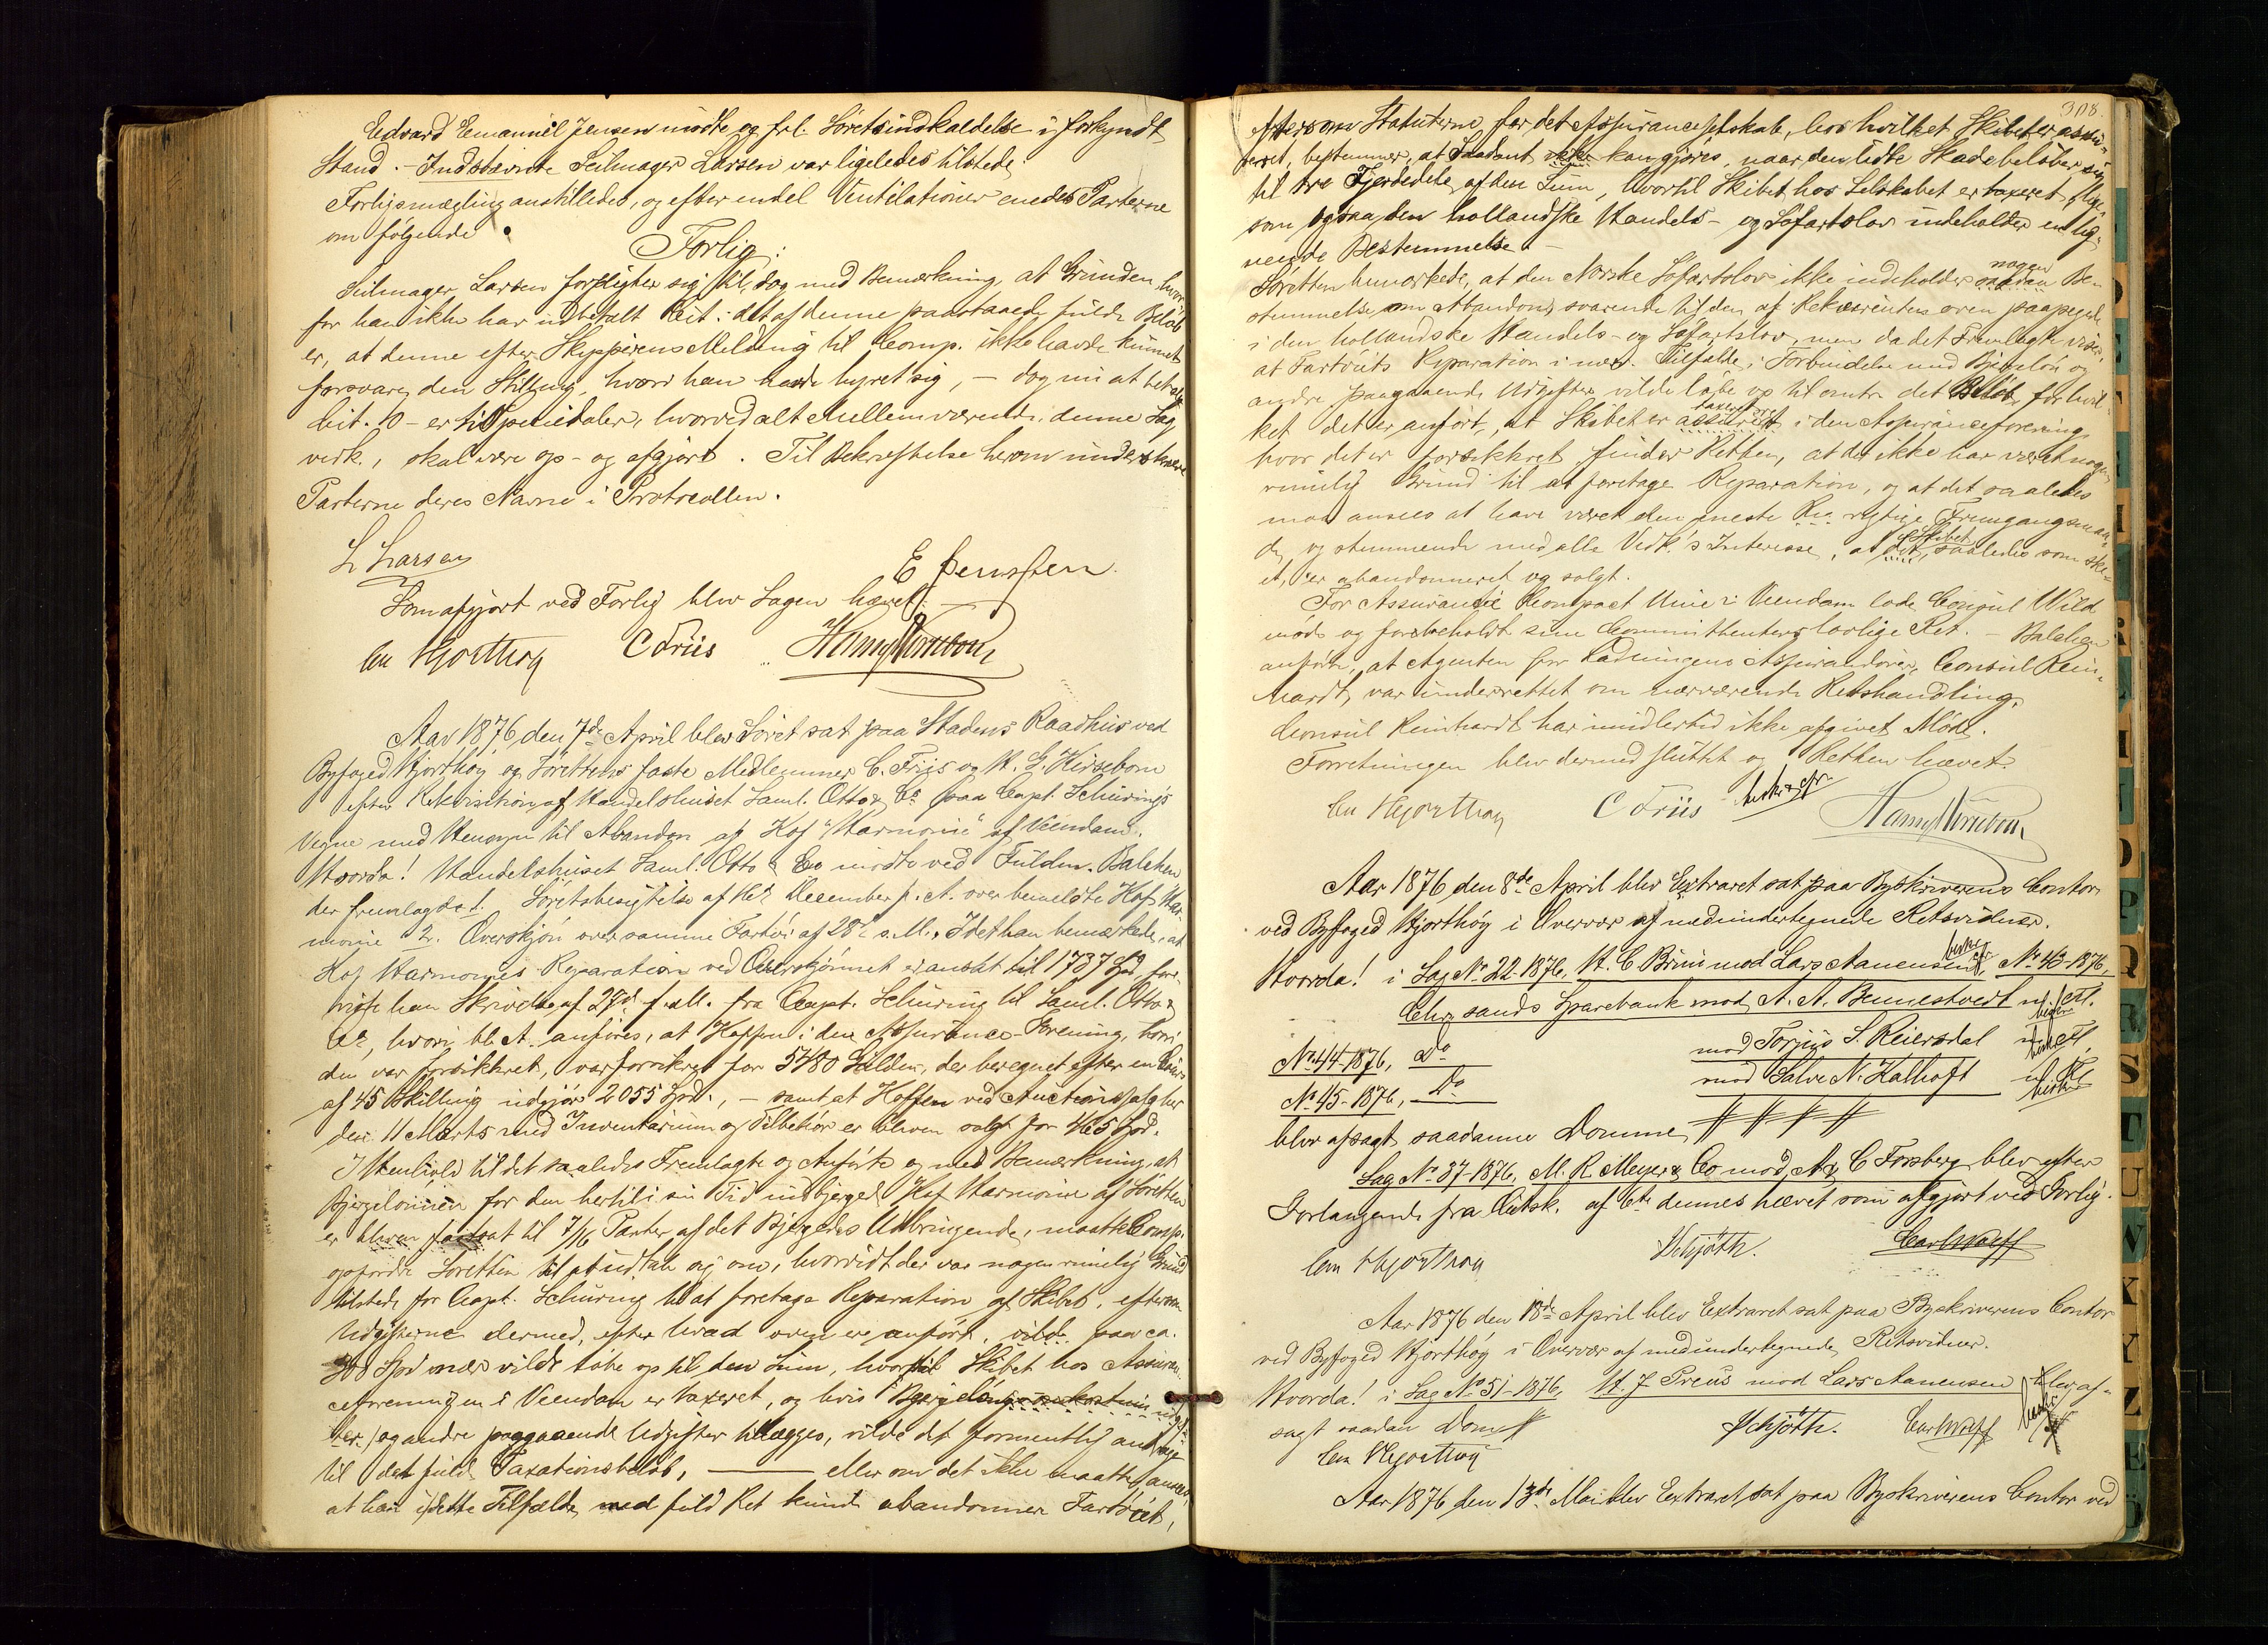 Edvard Emanuel Jensen mødte og frl. Søretsindkaldelse i forkyndt
Stand. – Indstævnte Seilmager Larsen var ligeledes tilstede
Forligsmægling anstilledes, og efter endel Ventilationer enedes Parterne
om følgende
Forlig:
Seilmager Larsen forpligter sig til, dog med Bemærkning, at Grunden hvor-
for han ikke har udbetalt Cit. det af denne paastaaede fulde Beløb
er, at denne efter Skipperens Melding til Comp. ikke havde kunnet
forsvare den Stilling, hvori han havde hyret sig, – dog nu at betale
Cit. 10 – er ti Speciedaler, hvorved alt Mellemværende, denne Sag
vedk., skal være op- og afgjort. Til Bekræftelse herom underskrive
Parterne deres Navne i Protocollen.
L Larsen
E Jenssen.
Som afgjort ved Forlig blev Sagen hævet.
Hjorthøy C Friis
Aar 1876 den 7de April blev Søret sat paa Stadens Raadhus ved
Byfoged Hjorthøy og Sørettens faste Medlemmer C. Friis og H. G. Kirsebom
efter Rekvisition af Handelshuset Saml. Otto & Co paa Capt. Schurings
Vegne med Hensyn til Abandon af Kof "Harmonie" af Veendam.
Hvorda! Handelshuset Saml. Otto & Co mødte ved Fuldm. Balchen
der fremlagde 1. Søretsbesigtelse af December f. A. over bemeldte Kof Har-
monie 2. Overskjøn over samme Fartøi af 28de s. M., Idet han bemærkede, at
Kof Harmonies Reparation ved Overskjønnet er ansat til 1737 Spd, fore-
viste han Skrivelse af 27de f. M. fra Capt. Schuring til Saml. Otto &
Co, hvori bl. A. anføres, at Koffen i den Assurance-Forening, hvori
den var forsikkret, var forsikret for 5480 Gulden, der beregnet efter en Cours
af 45 Skilling udgjør 2055 Spd., – samt at Koffen ved Auctionssalg her
den 11 Marts med Inventarium og Tilbehør er bleven solgt for 465 Spd.
I Henhold til det saaledes Fremlagte og Anførte og med Bemærkning, at
Bjergelønnen for den hertil i sin Tid indbjerged Kof Harmonie af Søretten
er bleven fastsat til 7/16 Parter af det Bjergedes Udbringende, maatte Comp.
opfordre Søretten til at udtale sig om, hvorvidt der var nogen rimelig Grund
tilstede for Capt. Schuring til at foretage Reparation af Skibet, eftersom
Udgifterne dermed, efter hvad oven er anført, vilde paa ca.
300 Spd nær vilde løbe op til den Sum, hvortil Skibet hos Assuran-
ceforeningen i Veendam er taxeret, og hvis Bjergelønsomkostnin
og andre paagaaende Udgifter tillægges, vilde det formentlig andrage
til det fulde Taxationsbeløb, ——— eller om det ikke maatte ansees,
at han i dette Tilfælde med fuld Ret kunde abandonnere Fartøiet,
308.
eftersom Statuterne for det Assuranceselskab, hos hvilket Skibet er assu-
reret, bestemmer, at Saadant ikke kan gjøres, naar den lidte Skade beløber sig
til tre Fjerdedele af den Sum, hvortil Skibet hos Selskabet er taxeret, lige-
som ogsaa den hollandske Handels- og Søfartslov indeholder en lig-
nende Bestemmelse. –
Søretten bemærkede, at den Norske Søfartslov ikke indeholder nogen saadan Be-
stemmelse om Abandon, svarende til den af Rekvirenten oven paapegede
i den hollandske Handels- og Søfartslov, men da det Fremlagte viser,
at Fartøiets Reparation i nærv. Tilfælde i Forbindelse med Bjergeløn og
andre paagaaende Udgifter vilde løbe op til omtr. det Beløb, for hvil-
ket det er anført, at Skibet er taxeret assureret i den Assuranceforening
hvor det er forsikkret finder Retten, at der ikke har været nogen
rimelig Grund til at foretage Reparation, og at det saaledes
maa ansees at have været den eneste rigtige Fremgangsmaa-
de, og stemmende med alle Vedk.'s Interesse, at det Skibet, saaledes som ske-
et, er abandonneret og solgt.
For Assurancie Compact Unie i Veendam lode Consul Wild
møde og forbeholdt sine Committenters lovlige Ret. – Balchen
anførte, at Agenten for Ladningens Assurandører, Consul Rein-
hardt, var underrettet om nærværende Retshandling.
Consul Reinhardt har imidlertid ikke afgivet Møde.
Forretningen blev dermed sluttet og Retten hævet.
Hjorthøy C Friis
Aar 1876 den 8de April blev Extraret sat paa Byskriverens Contor
ved Byfoged Hjorthøy i Overvær af medundertegnede Retsvidner.
Hvorda! i Sag No 22-1876, H. C. Bruun mod Lars Aanensen, No 43-1876,
Chr.sands Sparebank mod A. A. Bennestvedt m. fl.
No 44-1876, Do mod Torjus S. Reiersdal m. fl.
No 45-1876, Do mod Salve N. Kalhoft m. Fl.
blev afsagt saadanne Domme
Sag No 37-1876, M. R. Meyer & Co mod A. C Forsberg blev efter
Forlangende fra Citsk. af 6te dennes hævet som afgjort ved Forlig.
Hjorthøy Schjøth. Carl Wolff
Aar 1876 den 18de April blev Extraret sat paa Byskriverens Contor
ved Byfoged Hjorthøy i Overvær af medundertegnede Retsvidner.
Hvorda! i Sag No 51-1876, H. J. Preus mod Lars Aanensen blev af-
sagt saadan Dom
Schjøth. Carl Wolff
Hjorthøy
Aar 1876 den 13de Mai blev Extraret sat paa Byskriverens Contor ved